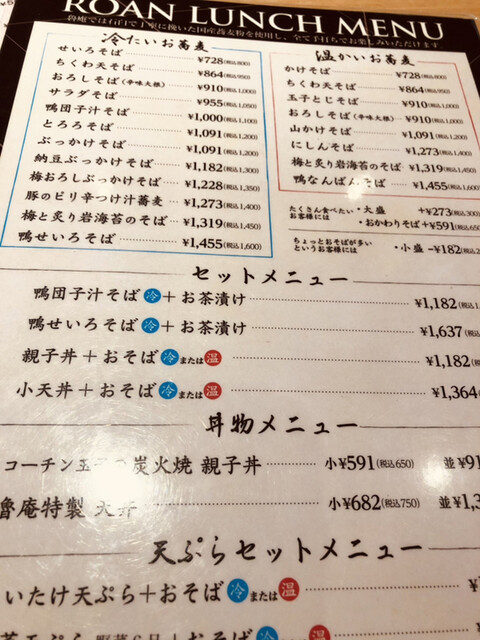 ROAN LUNCH MENU
冷たいお蕎麦
せいろそば ¥728(税込800)
ちくわ天そば ¥864(税込950)
おろしそば(辛味大根) ¥910(税込1,000)
サラダそば ¥955(税込1,050)
鴨団子汁そば ¥1,000(税込1,100)
とろろそば ¥1,091(税込1,200)
ぶっかけそば ¥1,091(税込1,200)
納豆ぶっかけそば ¥1,182(税込1,300)
梅おろしぶっかけそば ¥1,228(税込1,350)
豚のピリ辛つけ汁蕎麦 ¥1,273(税込1,400)
梅と炙り岩海苔のそば ¥1,319(税込1,450)
鴨せいろそば ¥1,455(税込1,600)
温かいお蕎麦
かけそば ¥728(税込800)
ちくわ天そば ¥864(税込950)
玉子とじそば ¥910(税込1,000)
おろしそば(辛味大根) ¥910(税込1,000)
山かけそば ¥1,091(税込1,200)
にしんそば ¥1,273(税込1,400)
梅と炙り岩海苔のそば ¥1,319(税込1,450)
鴨なんばんそば ¥1,455(税込1,600)
たくさん食べたい お客様には
・大盛 +¥273(税込300)
・おかわりそば +¥591(税込
ちょっとおそばが多い というお客様には
・小盛 −¥182(税込
セットメニュー
鴨団子汁そば 冷 + お茶漬け ¥1,182(税込
鴨せいろそば 冷 + お茶漬け ¥1,637(税込
親子丼 + おそば 冷 または 温 ¥1,182
小天丼 + おそば 冷 または 温 ¥1,364
丼物メニュー
コーチン玉子の炭火焼 親子丼 小¥591(税込650) 並¥91
魯庵特製 天丼 小¥682(税込750) 並¥1,3
天ぷらセットメニュー
いたけ天ぷら+おそば 冷 または 温